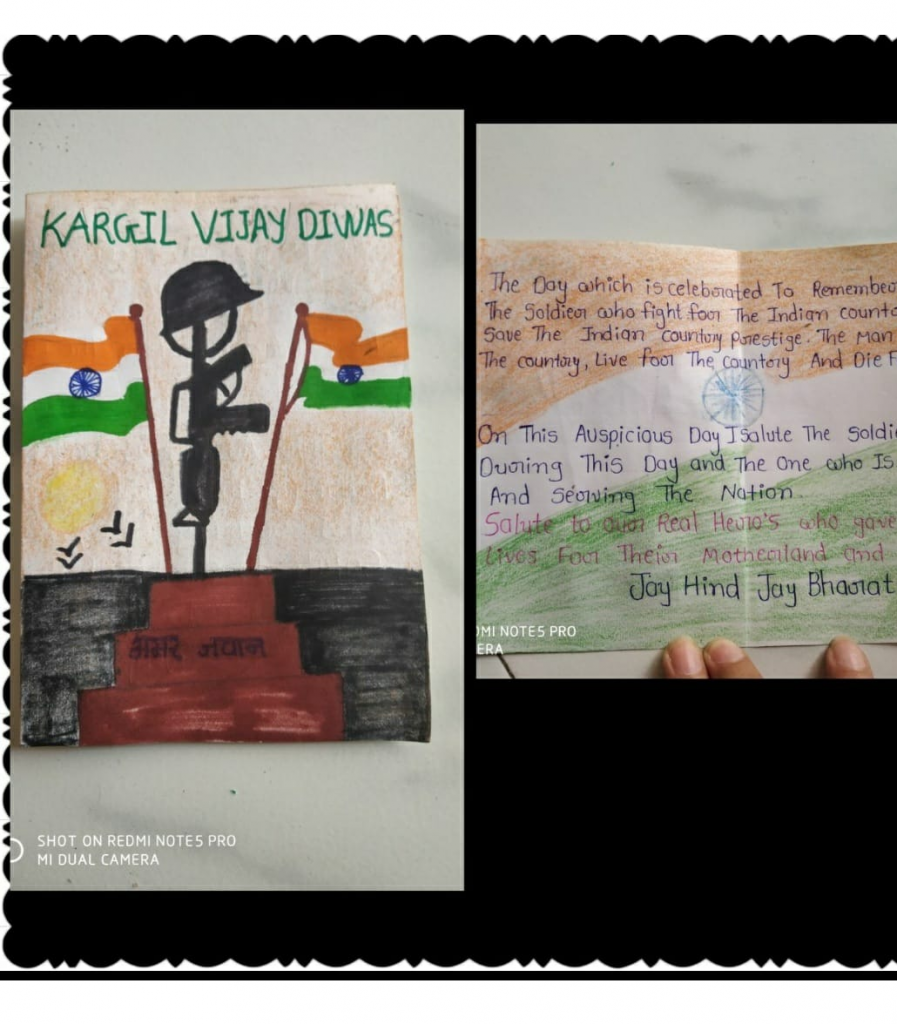 KARGIL VIJAY DIWAS
अमर जवान
SHOT ON REDMI NOTE5 PRO
MI DUAL CAMERA
The Day which is celebrated To Remember
The Soldier who fight for The Indian countr
Save The Indian Country Prestige. The Man
The country, Live for The Country And Die F
On This Auspicious Day I Salute The Soldie
During This Day and The One who Is
And Serving The Nation
Salute to our Real Hero's who gave
Lives For Their Motherland and
Jay Hind Jay Bharat
DMI NOTE5 PRO
ERA